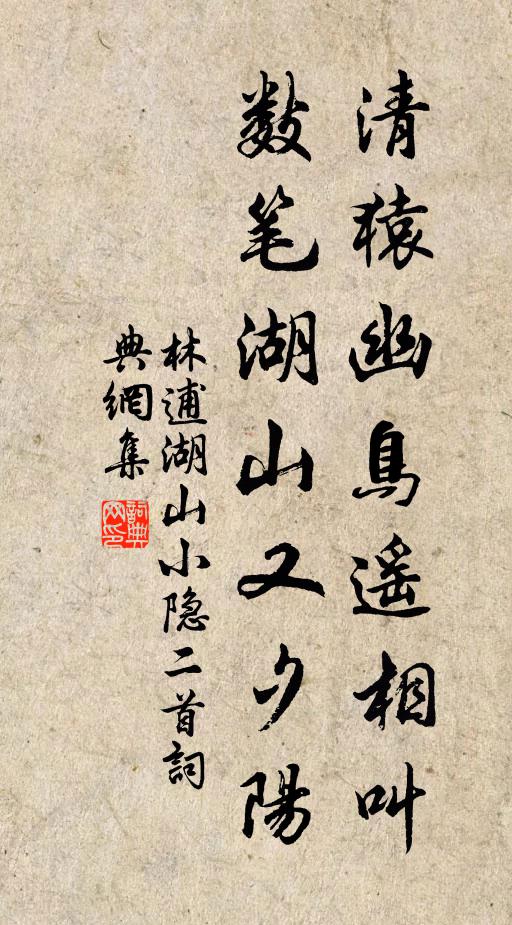 清猿幽鳥遥相叫
数笔湖山又夕陽
林逋湖山小隐二首詞
典網集
詞典网印